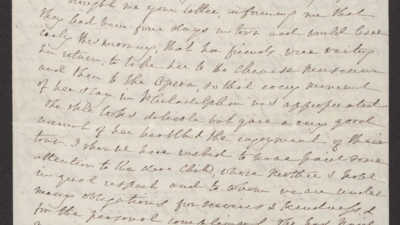 me your letter, informing me that
They had been four days in town and would leave
early this morning, that her friends were waiting
her return, to take her to the Chinese Museum
and then to the Opera, so that every moment
of her stay in Philadelphia was appropriated
She still looks delicate but gave a very good
account of her health & the enjoyment of their
tour. I should have wished to have paid some
attention to the dear Child, whose Mother I hold
in great respect, and to whom we are under
many obligations for services & kindness, &
for the personal compliment. The